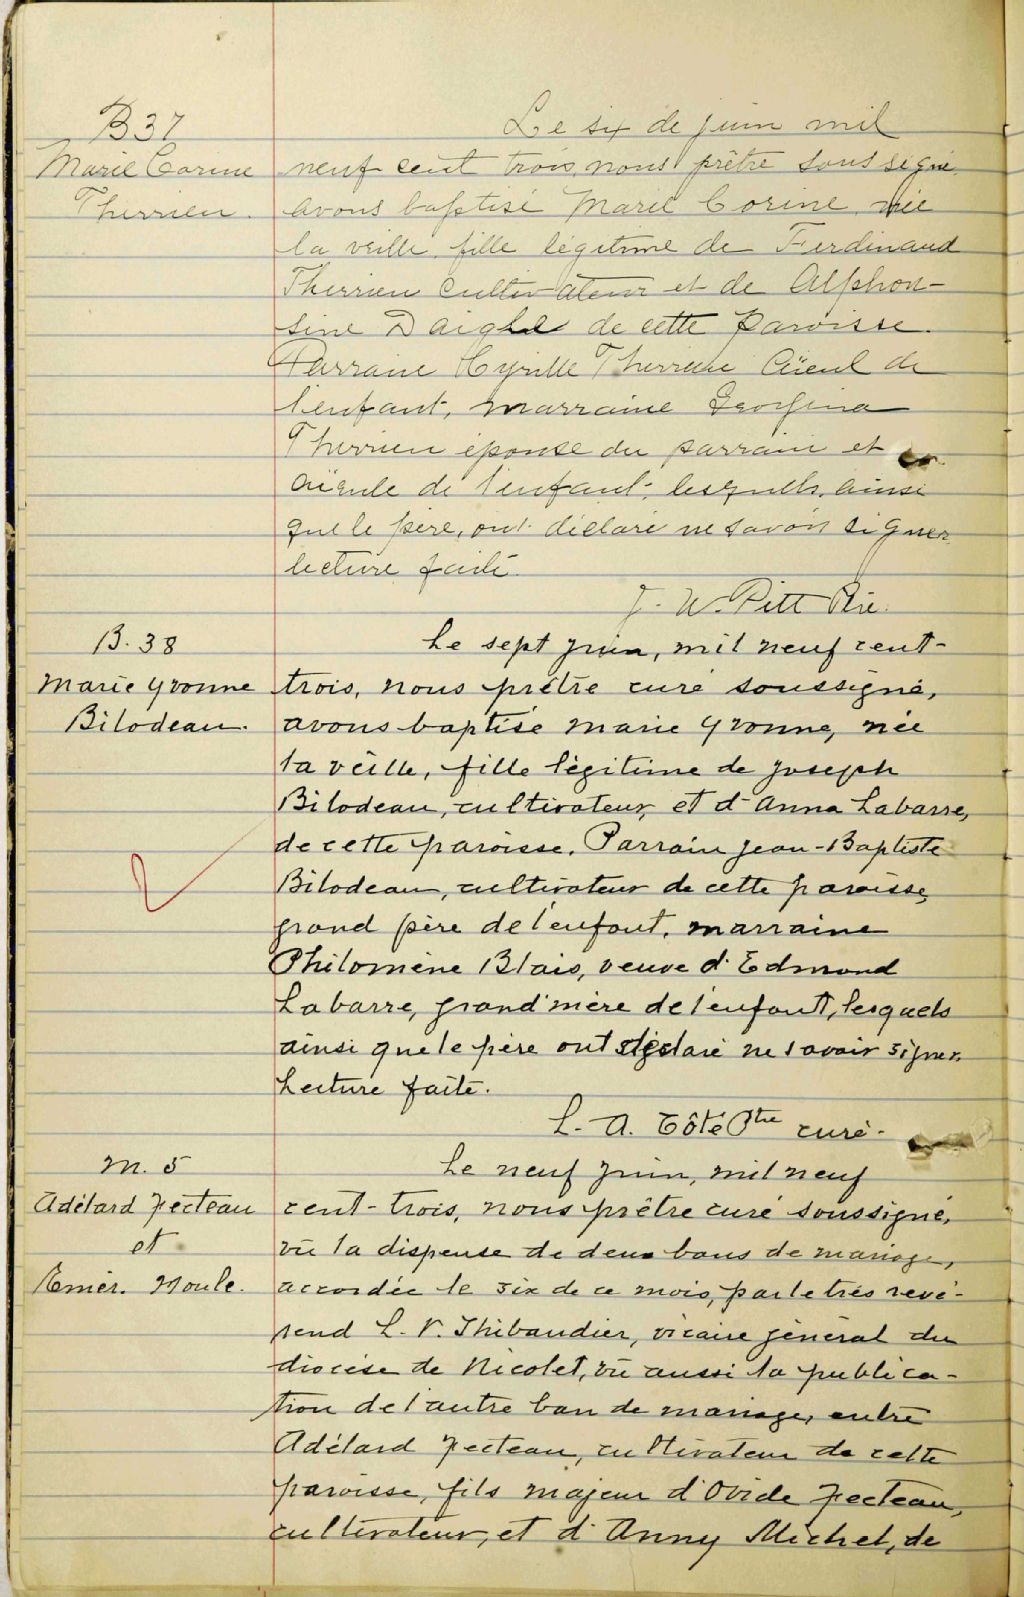 B 37
Marie Corine
Therrien.
Le six de juin mil
neuf cent trois, nous prêtre soussigné
avons baptisé Marie Corine née
la veille, fille légitime de Ferdinand
Therrien cultivateur et de Alphon-
sine Daigle de cette paroisse.
Parrain Cyrille Therrien aïeul de
l'enfant, marraine Georgina
Therrien épouse du parrain et
aïeule de l'enfant, lesquels, ainsi
que le père, ont déclaré ne savoir signer
lecture faite.
J. W. Pitt Ptre.
B. 38
Marie Yvonne
Bilodeau.
Le sept juin, mil neuf cent-
trois, nous prêtre curé soussigné,
avons baptisé Marie Yvonne, née
la veille, fille légitime de Joseph
Bilodeau, cultivateur, et d'Anna Labarre,
de cette paroisse. Parrain Jean-Baptiste
Bilodeau, cultivateur de cette paroisse,
grand père de l'enfant, marraine
Philomène Blais, veuve d'Edmond
Labarre, grand'mère de l'enfant, lesquels
ainsi que le père ont déclaré ne savoir signer.
Lecture faite.
L. A. Côté Ptre curé.
M. 5
Adélard Fecteau
et
Emér. Houle.
Le neuf juin, mil neuf
cent-trois, nous prêtre curé soussigné,
vu la dispense de deux bans de mariage,
accordée le six de ce mois, par le très révé-
rend L. V. Thibaudier, vicaire général du
diocèse de Nicolet, vu aussi la publica-
tion de l'autre ban de mariage, entre
Adélard Fecteau, cultivateur de cette
paroisse, fils majeur d'Ovide Fecteau,
cultivateur, et d'Anny Michel, de